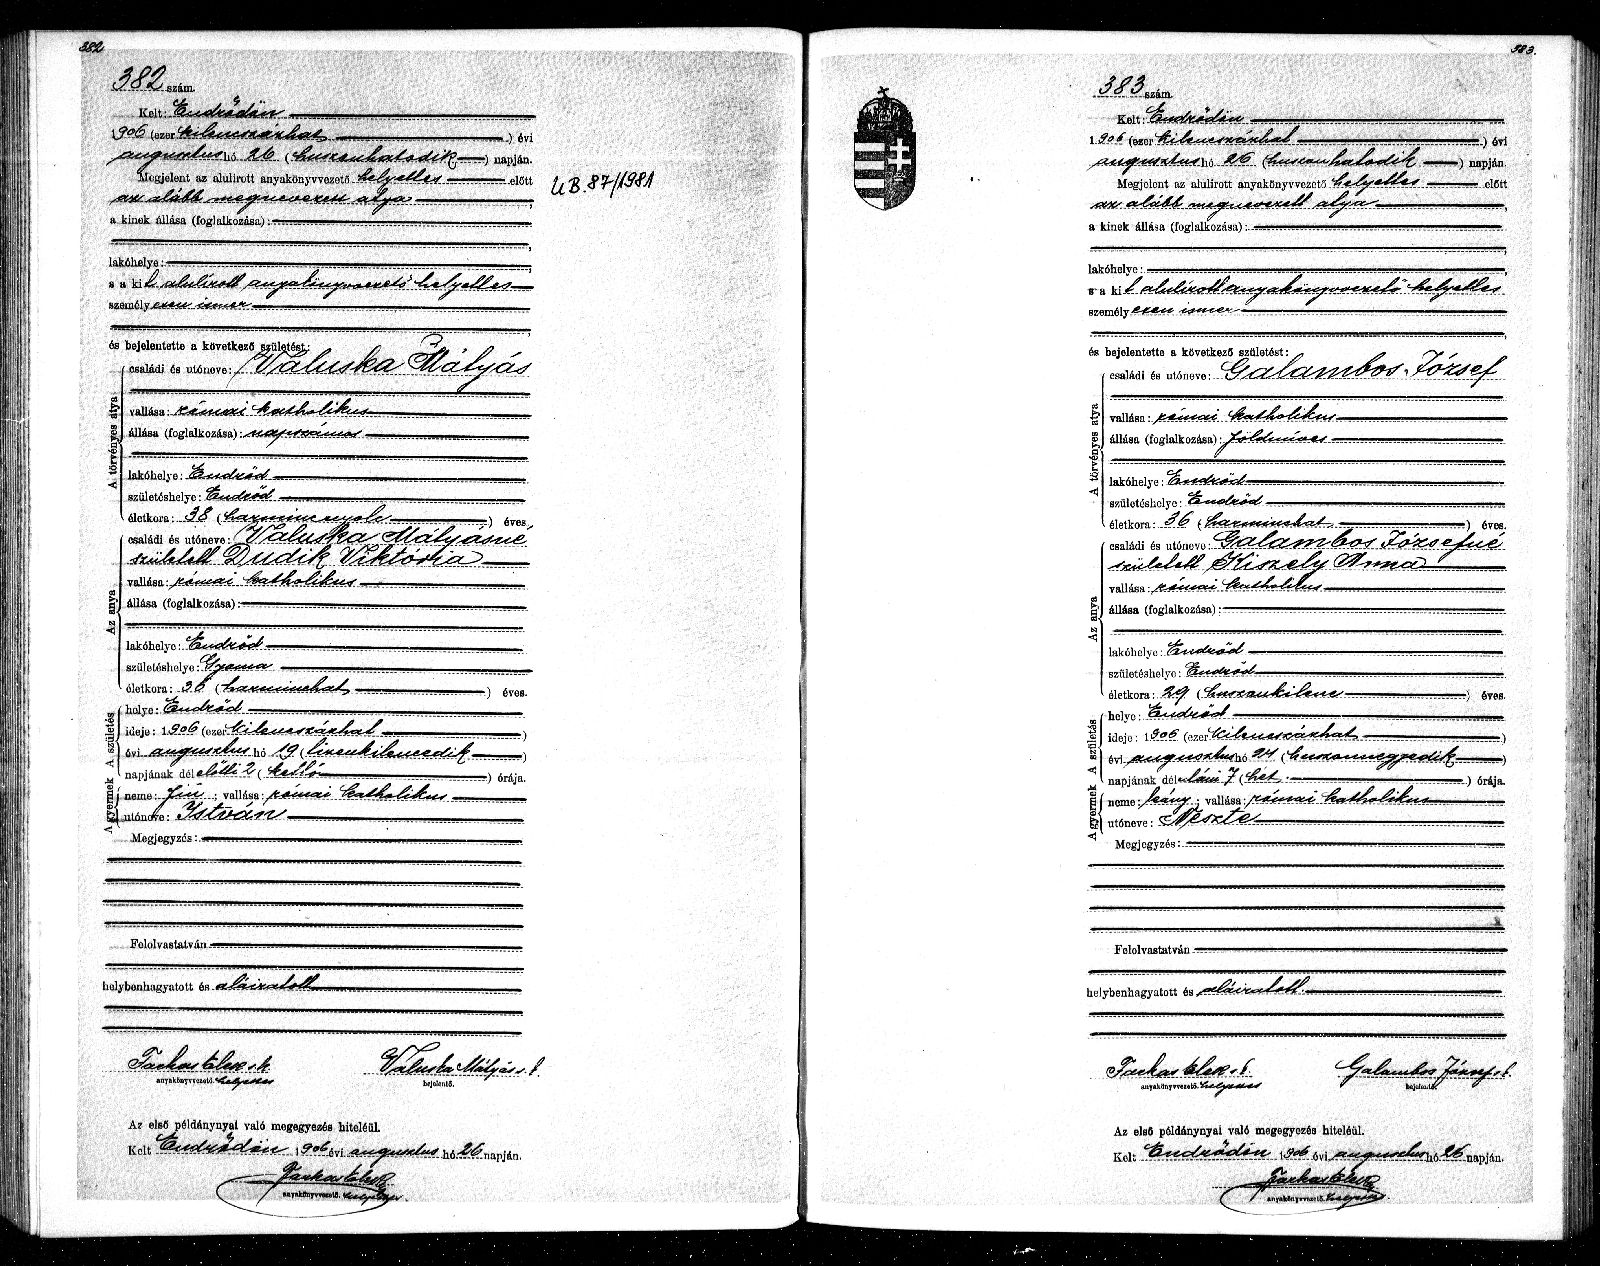 382
382 szám.
Kelt: Endrődön
1906 (ezer kilencszázhat ) évi
augusztus hó 26 (huszonhatodik ) napján.
Megjelent az alulirott anyakönyvvezető helyettes előtt
az alább megnevezett atya ,
a kinek állása (foglalkozása):
,
lakóhelye: ,
s a kit alulírott anyakönyvvezető helyettes
személyesen ismer
,
és bejelentette a következő születést:
A törvényes atya
családi és utóneve: Valuska Mátyás
vallása: római katholikus
állása (foglalkozása): napszámos
lakóhelye: Endrőd
születéshelye: Endrőd
életkora: 38 (harmincnyolc ) éves
Az anya
családi és utóneve: Valuska Mátyásné
született Dudik Viktória
vallása: római katholikus
állása (foglalkozása):
lakóhelye: Endrőd
születéshelye: Gyoma
életkora: 36 (harminchat ) éves.
A születés
helye: Endrőd
ideje: 1906 (ezer kilencszázhat )
évi augusztus hó 19 (tizenkilencedik )
napjának dél előtti 2 (kettő ) órája.
A gyermek
neme: fiu ; vallása: római katholikus
utóneve: István
Megjegyzés:
Felolvastatván
helybenhagyatott és aláiratott
Farkas Elek s. k. Valuska Mátyás s. k.
anyakönyvvezető helyettes bejelentő.
Az első példánynyal való megegyezés hiteléül.
Kelt Endrődön 1906 évi augusztus hó 26 napján.
Farkas Elek
anyakönyvvezető. helyettes
UB. 87/1981
383.
383 szám.
Kelt: Endrődön
1906 (ezer kilencszázhat ) évi
augusztus hó 26 (huszonhatodik ) napján
Megjelent az alulirott anyakönyvvezető helyettes előtt
az alább megnevezett atya ,
a kinek állása (foglalkozása):
lakóhelye:
s a kit alulirott anyakönyvvezető helyettes
személyesen ismer
,
és bejelentette a következő születést:
A törvényes atya
családi és utóneve: Galambos József
vallása: római katholikus
állása (foglalkozása): földmíves
lakóhelye: Endrőd
születéshelye: Endrőd
életkora: 36 (harminchat ) éves.
Az anya
családi és utóneve: Galambos Józsefné
született Kiszely Anna
vallása: római katholikus
állása (foglalkozása):
lakóhelye: Endrőd
születéshelye: Endrőd
életkora: 29 (huszonkilenc ) éves.
A születés
helye: Endrőd
ideje: 1906 (ezer kilencszázhat )
évi augusztus hó 24 (huszonnegyedik )
napjának dél utáni 7 (hét ) órája.
A gyermek
neme: leány ; vallása: római katholikus
utóneve:
Megjegyzés:
Felolvastatván
helybenhagyatott és aláiratott
Farkas Elek s. k. Galambos József s. k.
anyakönyvvezető. helyettes bejelentő.
Az első példánynyal való megegyezés hiteléül.
Kelt Endrődön 1906 évi augusztus hó 26 napján.
Farkas Elek
anyakönyvvezető. helyettes